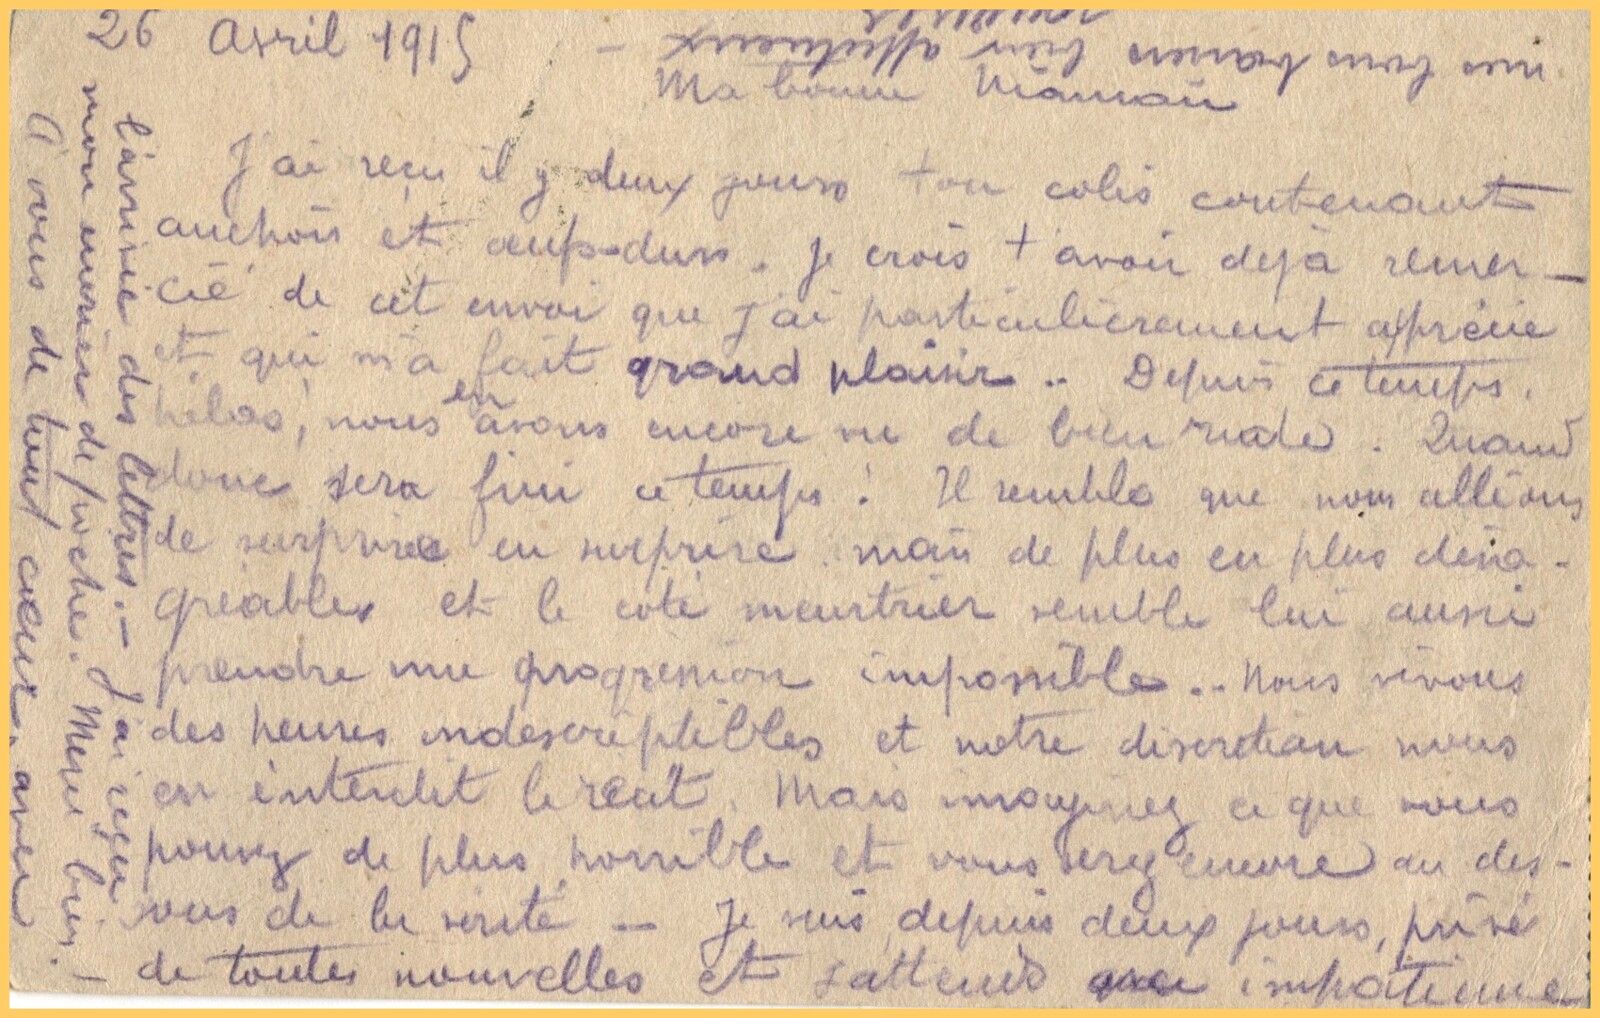 26 Avril 1915
Ma bonne Maman
J'ai reçu il y deux jours ton colis contenant
anchois et œufs durs. Je crois t'avoir dejà remer-
cié de cet envoi que j'ai particulièrement apprécié
et qui m'a fait grand plaisir.. Depuis ce temps,
hélas, nous en avons encore vu de bien rude. Quand
donc sera fini ce temps! Il semble que nous allions
de surprise en surprise mais de plus en plus désa-
gréables et le coté meurtrier semble lui aussi
prendre une progression impossible.. Nous vivons
des heures indescriptibles et notre discretion nous
en interdit le récit. Mais imaginez ce que vous
pouvez de plus horrible et vous serez encore au des-
sous de la vérité — Je suis, depuis deux jours, privé
de toutes nouvelles et j'attends avec impatience
l'arrivée des lettres. — J'ai reçu
mon necessaire de poche. Merci bien. —
A vous de tout cœur, avec
mes bons baisers bien affectueux —